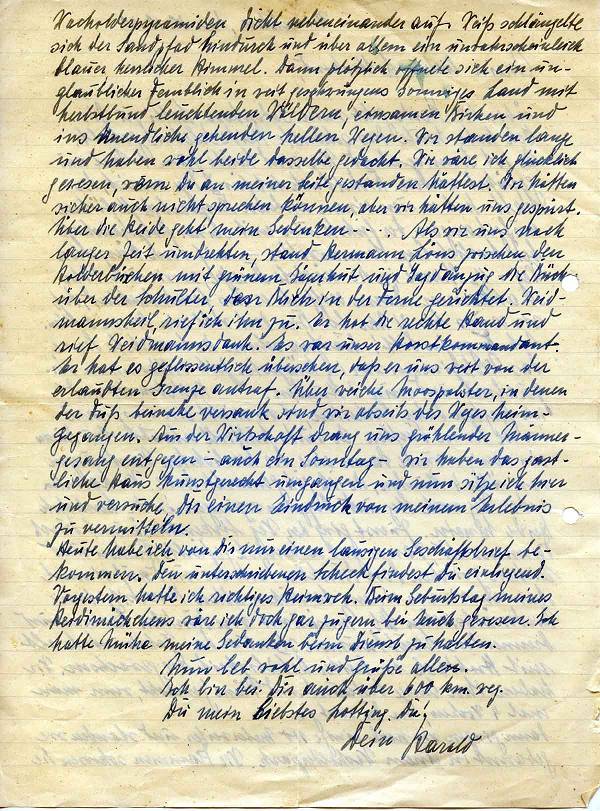 Wacholderpyramiden dicht nebeneinander auf. Weiß schlängelte
sich der Sandpfad hindurch und über allem ein unwahrscheinlich
blauer herrlicher Himmel. Dann plötzlich öffnete sich ein un-
glaublicher Fernblick in weit geschwungenes sonniges Land mit
herbstbunt leuchtenden Wäldern, einsamen Birken und
ins Unendliche gehenden hellen Wegen. Wir standen lange
und haben wohl beide dasselbe gedacht. Wie wäre ich glücklich
gewesen, wenn Du an meiner Seite gestanden hättest. Wir hätten
sicher auch nicht sprechen können, aber wir hätten uns gespürt.
Über die Heide geht mein Gedenken - - - . Als wir uns nach
langer Zeit umdrehten, stand Hermann Löns zwischen den
Holderbüschen mit grünem Jägerhut und Jagdanzug die Büchse
über der Schulter, den Blick in der Ferne gerichtet. Weid-
mannsheil, rief ich ihm zu. Er hob die rechte Hand und
rief Weidmannsdank. Es war unser Horstkommandant.
Er hat es geflissentlich übersehen, daß er uns weit von der
erlaubten Grenze antraf. Über weiche Moospolster, in denen
der Fuß beinahe versank sind wir abseits des Weges heim-
gegangen. Aus der Wirtschaft drang uns gröhlender Männer-
gesang entgegen - auch ein Sonntag - wir haben das gast-
liche Haus kunstgerecht umgangen und nun sitze ich hier
und versuche, Dir einen Eindruck von meinem Erlebnis
zu vermitteln.
Heute habe ich von Dir nur einen lausigen Geschäftsbrief be-
kommen. Den unterschriebenen Scheck findest Du einliegend.
Vorgestern hatte ich richtiges Heimweh. Beim Geburtstag meines
wäre ich doch gar zu gern bei Euch gewesen. Ich
hatte Mühe meine Gedanken beim Dienst zu halten.
Nun leb wohl und grüße alle.
Ich bin bei Dir auch über 600 km weg.
Du mein liebstes Lotting, Du!
Dein Harald